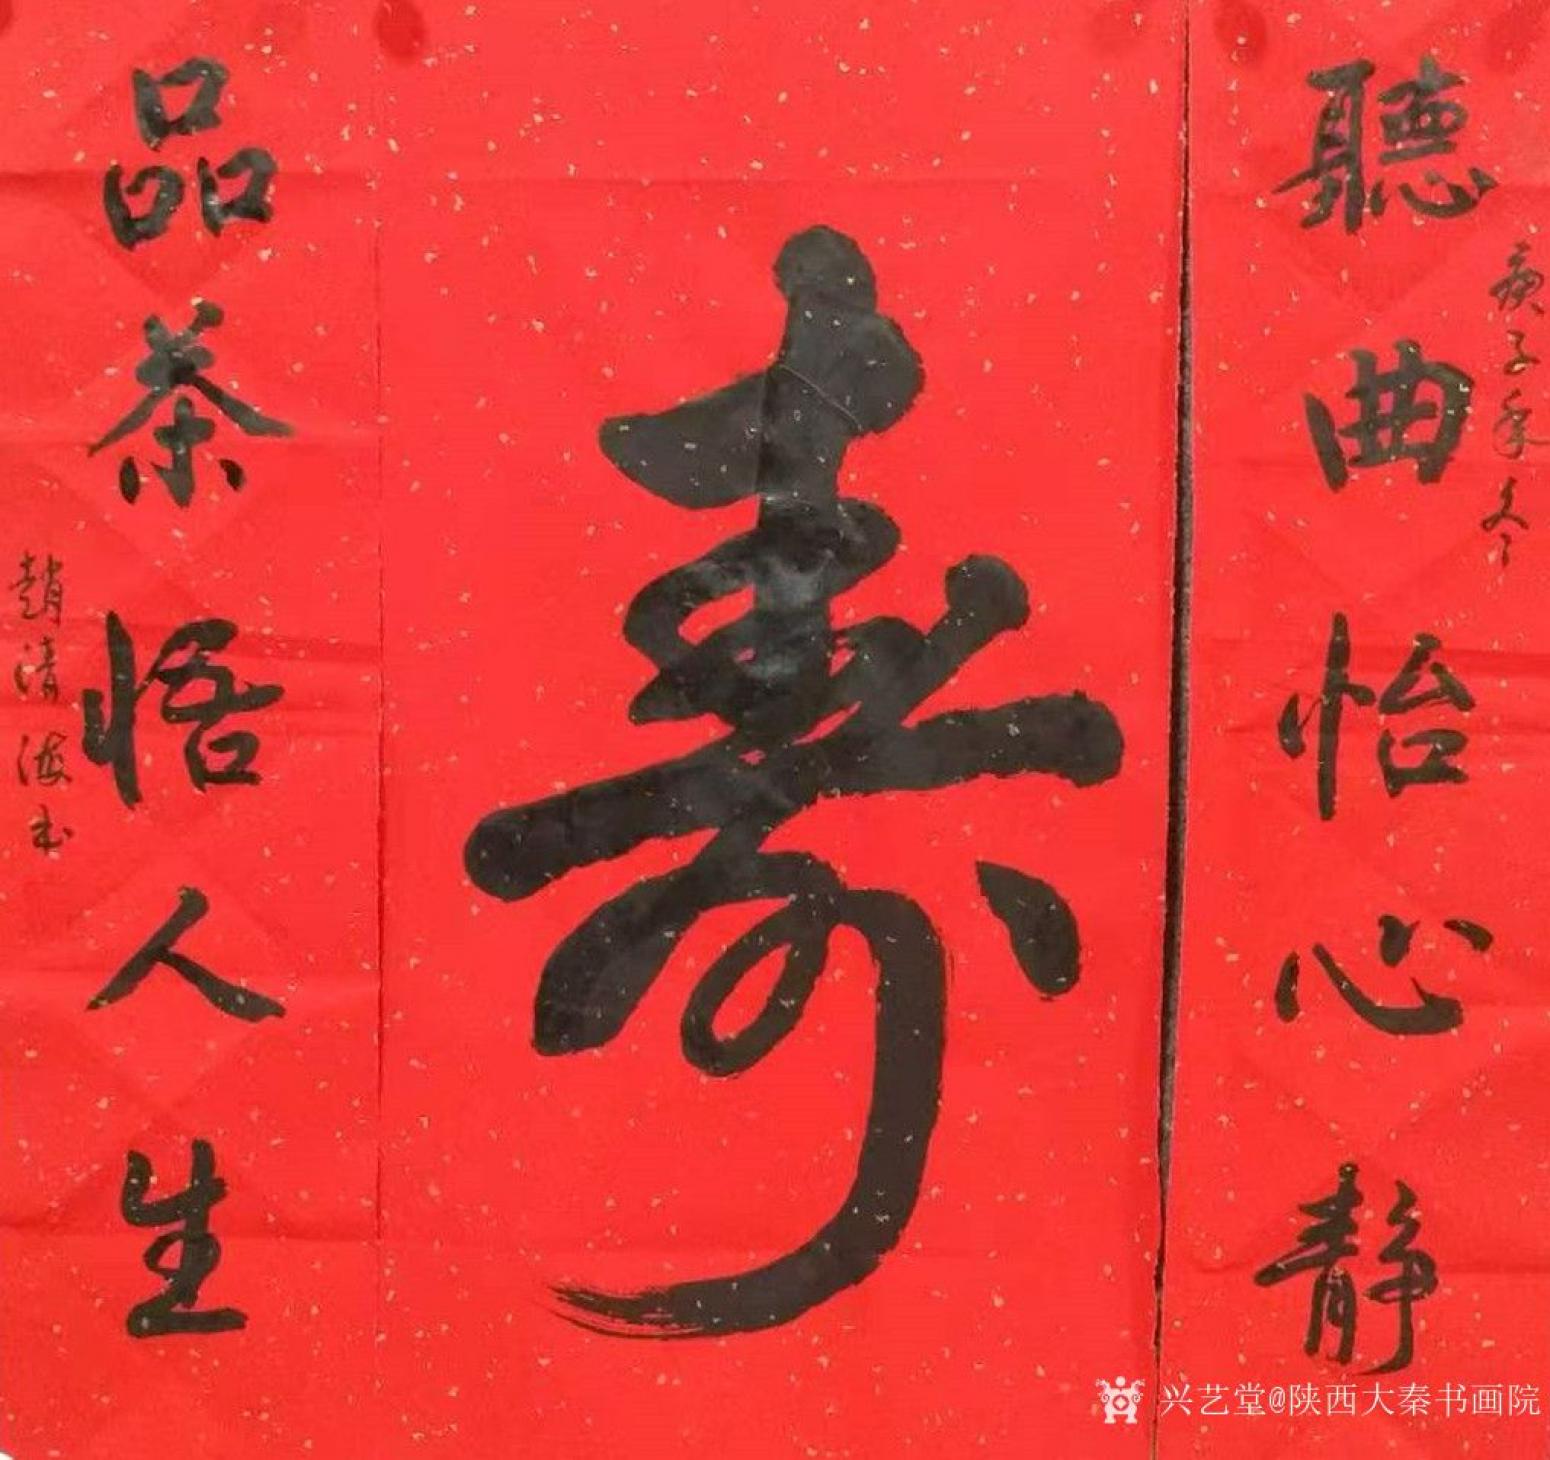 聽曲怡心静
庚子年冬
壽
品茶悟人生
趙清海书
兴艺堂@陕西大秦书画院